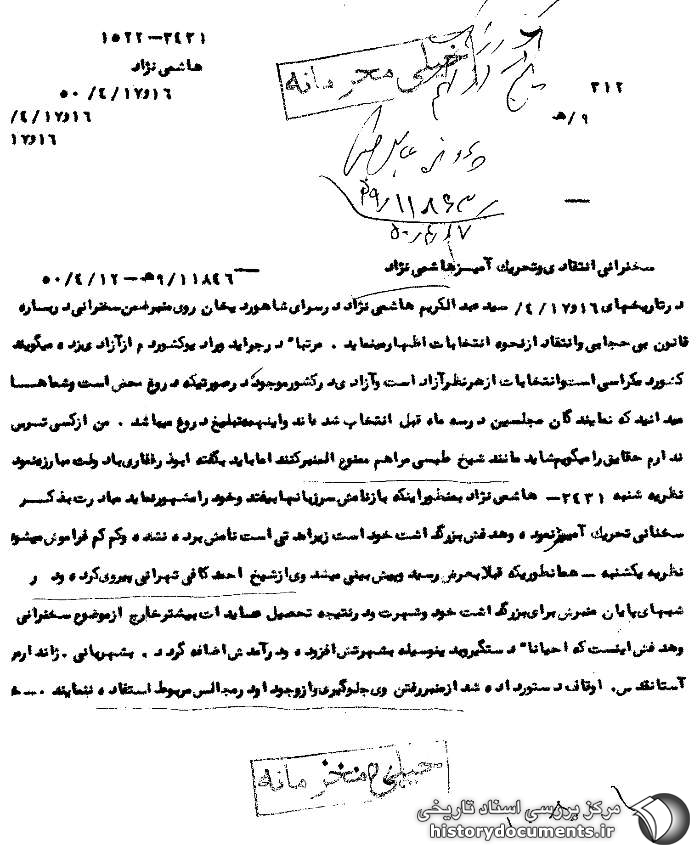 ۱۵۲۲-۳۴۳۱
هاشمی نژاد
۵۰ /۴/۱۷و۱۶
/۴/۱۷و۱۶
۱۷و۱۶
۳۱۲
۹/هـ
خیلی محرمانه
سخنرانی انتقادی و تحریک آمیز هاشمی نژاد
۹/۱۱۸۴۶هـ - ۵۰/۴/۱۲
در تاریخهای ۱۶و۱۷/۴/ سید عبدالکریم هاشمی نژاد در سرای شاهوردیخان روی منبر ضمن سخنرانی درباره
قانون بی حجابی و انتقاد از نحوه انتخابات اظهار مینماید . مرتبا" در جراید و رادیو کشور دم از آزادی زده میگویند
کشور دمکراسی است و انتخابات از هر نظر آزاد است و آزادی در کشور موجود در صورتیکه دروغ محض است و شماهــا
میدانید که نمایندگان مجلسین در سه ماه قبل انتخاب شده اند و اینهمه تبلیغ دروغ میباشد . من از کسی ترس
ندارم حقایق را میگویم شاید مانند شیخ طبسی مرا هم ممنوع المنبر کنند اما باید بگفته ابوذر غفاری با دولت مبارزه نمود
نظریه شنبه ۳۴۳۱- هاشمی نژاد بمنظور اینکه باز نامش سر زبانها بیفتد و خود را مشهور نماید مبادرت بذکــر
سخنانی تحریک آمیز نموده و هدفش بزرگداشت خود است زیرا مدتی است نامش برده نشده و کم کم فراموش میشود
نظریه یکشنبه - همانطوریکه قبلا بعرض رسید و پیش بینی میشد وی از شیخ احمد کافی تهرانی پیروی کرده و در
شبهای پایان منبرش برای بزرگداشت خود و شهرت و در نتیجه تحصیل عایدات بیشتر خارج از موضوع سخنرانی
و هدفش اینست که احیانا" دستگیر و بدینوسیله بشهرتش افزوده و در آمدش اضافه گردد . بشهربانی . ژاندارم
آستانقدس . اوقاف دستور داده شد از منبر رفتن وی جلوگیری و از وجود او در مجالس مربوط استفاده ننمایند .
خیلی محرمانه
مرکز بررسی اسناد تاریخی
historydocuments.ir